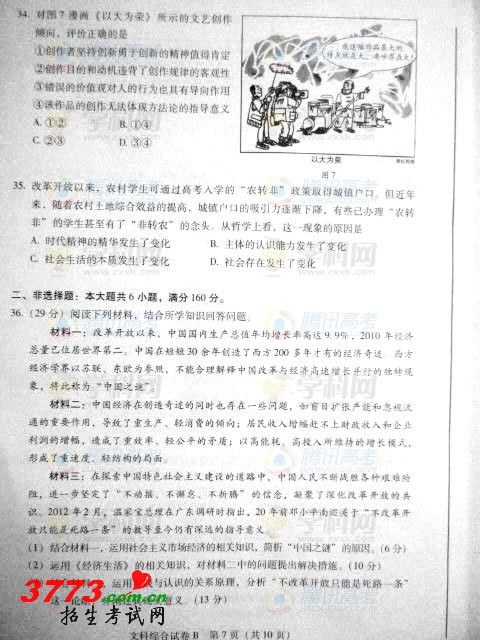 34. 对图7漫画《以大为荣》所示的文艺创作
倾向，评价正确的是
①创作者坚持创新勇于创新的精神值得肯定
②创作目的和动机违背了创作规律的客观性
③错误的价值观对人的行为也具有导向作用
④该作品的创作无法体现方法论的指导意义
A. ①② B. ①④
C. ②③ D. ③④
我这幅作品最大的
特点就是大，
以大为荣
图7
35. 改革开放以来，农村学生可通过高考入学的“农转非”政策取得城镇户口。但近年
来，随着农村土地综合效益的提高，城镇户口的吸引力逐渐下降，有些已办理“农转
非”的学生甚至有了“非转农”的念头。从哲学上看，这一现象的原因是
A. 时代精神的精华发生了变化 B. 主体的认识能力发生了变化
C. 社会生活的本质发生了变化 D. 社会存在发生了变化
二、非选择题：本大题共6小题，满分160分。
36. (29分) 阅读下列材料，结合所学知识回答问题。
材料一：改革开放以来，中国国内生产总值年均增长率高达9.9%，2010年经济
总量已位居世界第二。中国在短短30余年创造了西方200多年才有的经济奇迹。西方
经济学界以苏联、东欧为参照，不能合理解释中国改革与经济高速增长并行的独特现
象，将此称为“中国之谜”。
材料二：中国经济在创造奇迹的同时也存在一些问题，如盲目扩张产能和忽视流
通的重要作用，导致了重生产、轻消费的倾向；居民收入增幅赶不上财政收入和企业
利润的增幅，造成了重效率、轻公平的矛盾；以高能耗、高投入所维持的增长模式，
形成了重速度、轻结构的局面。
材料三：在探索中国特色社会主义建设的道路中，中国人民不断战胜各种艰难险
阻，进一步坚定了“不动摇、不懈怠、不折腾”的信念，凝聚了深化改革开放的共
识。2012年2月，温家宝总理在广东调研时指出，20年前邓小平南巡关于“不改革开
放只能是死路一条”的教导至今仍有深远的指导意义。
(1) 结合材料一，运用社会主义市场经济的相关知识，简析“中国之谜”的原因。(6分)
(2) 运用《经济生活》的相关知识，对材料二中的问题提出解决措施。(10分)
结合材料三，运用 与认识的关系原理，分析“不改革开放只能是死路一条”
这一论断 意义。(13分)
文科综合试卷B 第7页（共10页）
3773.com.cn
招生考试网
学科网
www.zxxk.com
腾讯高考